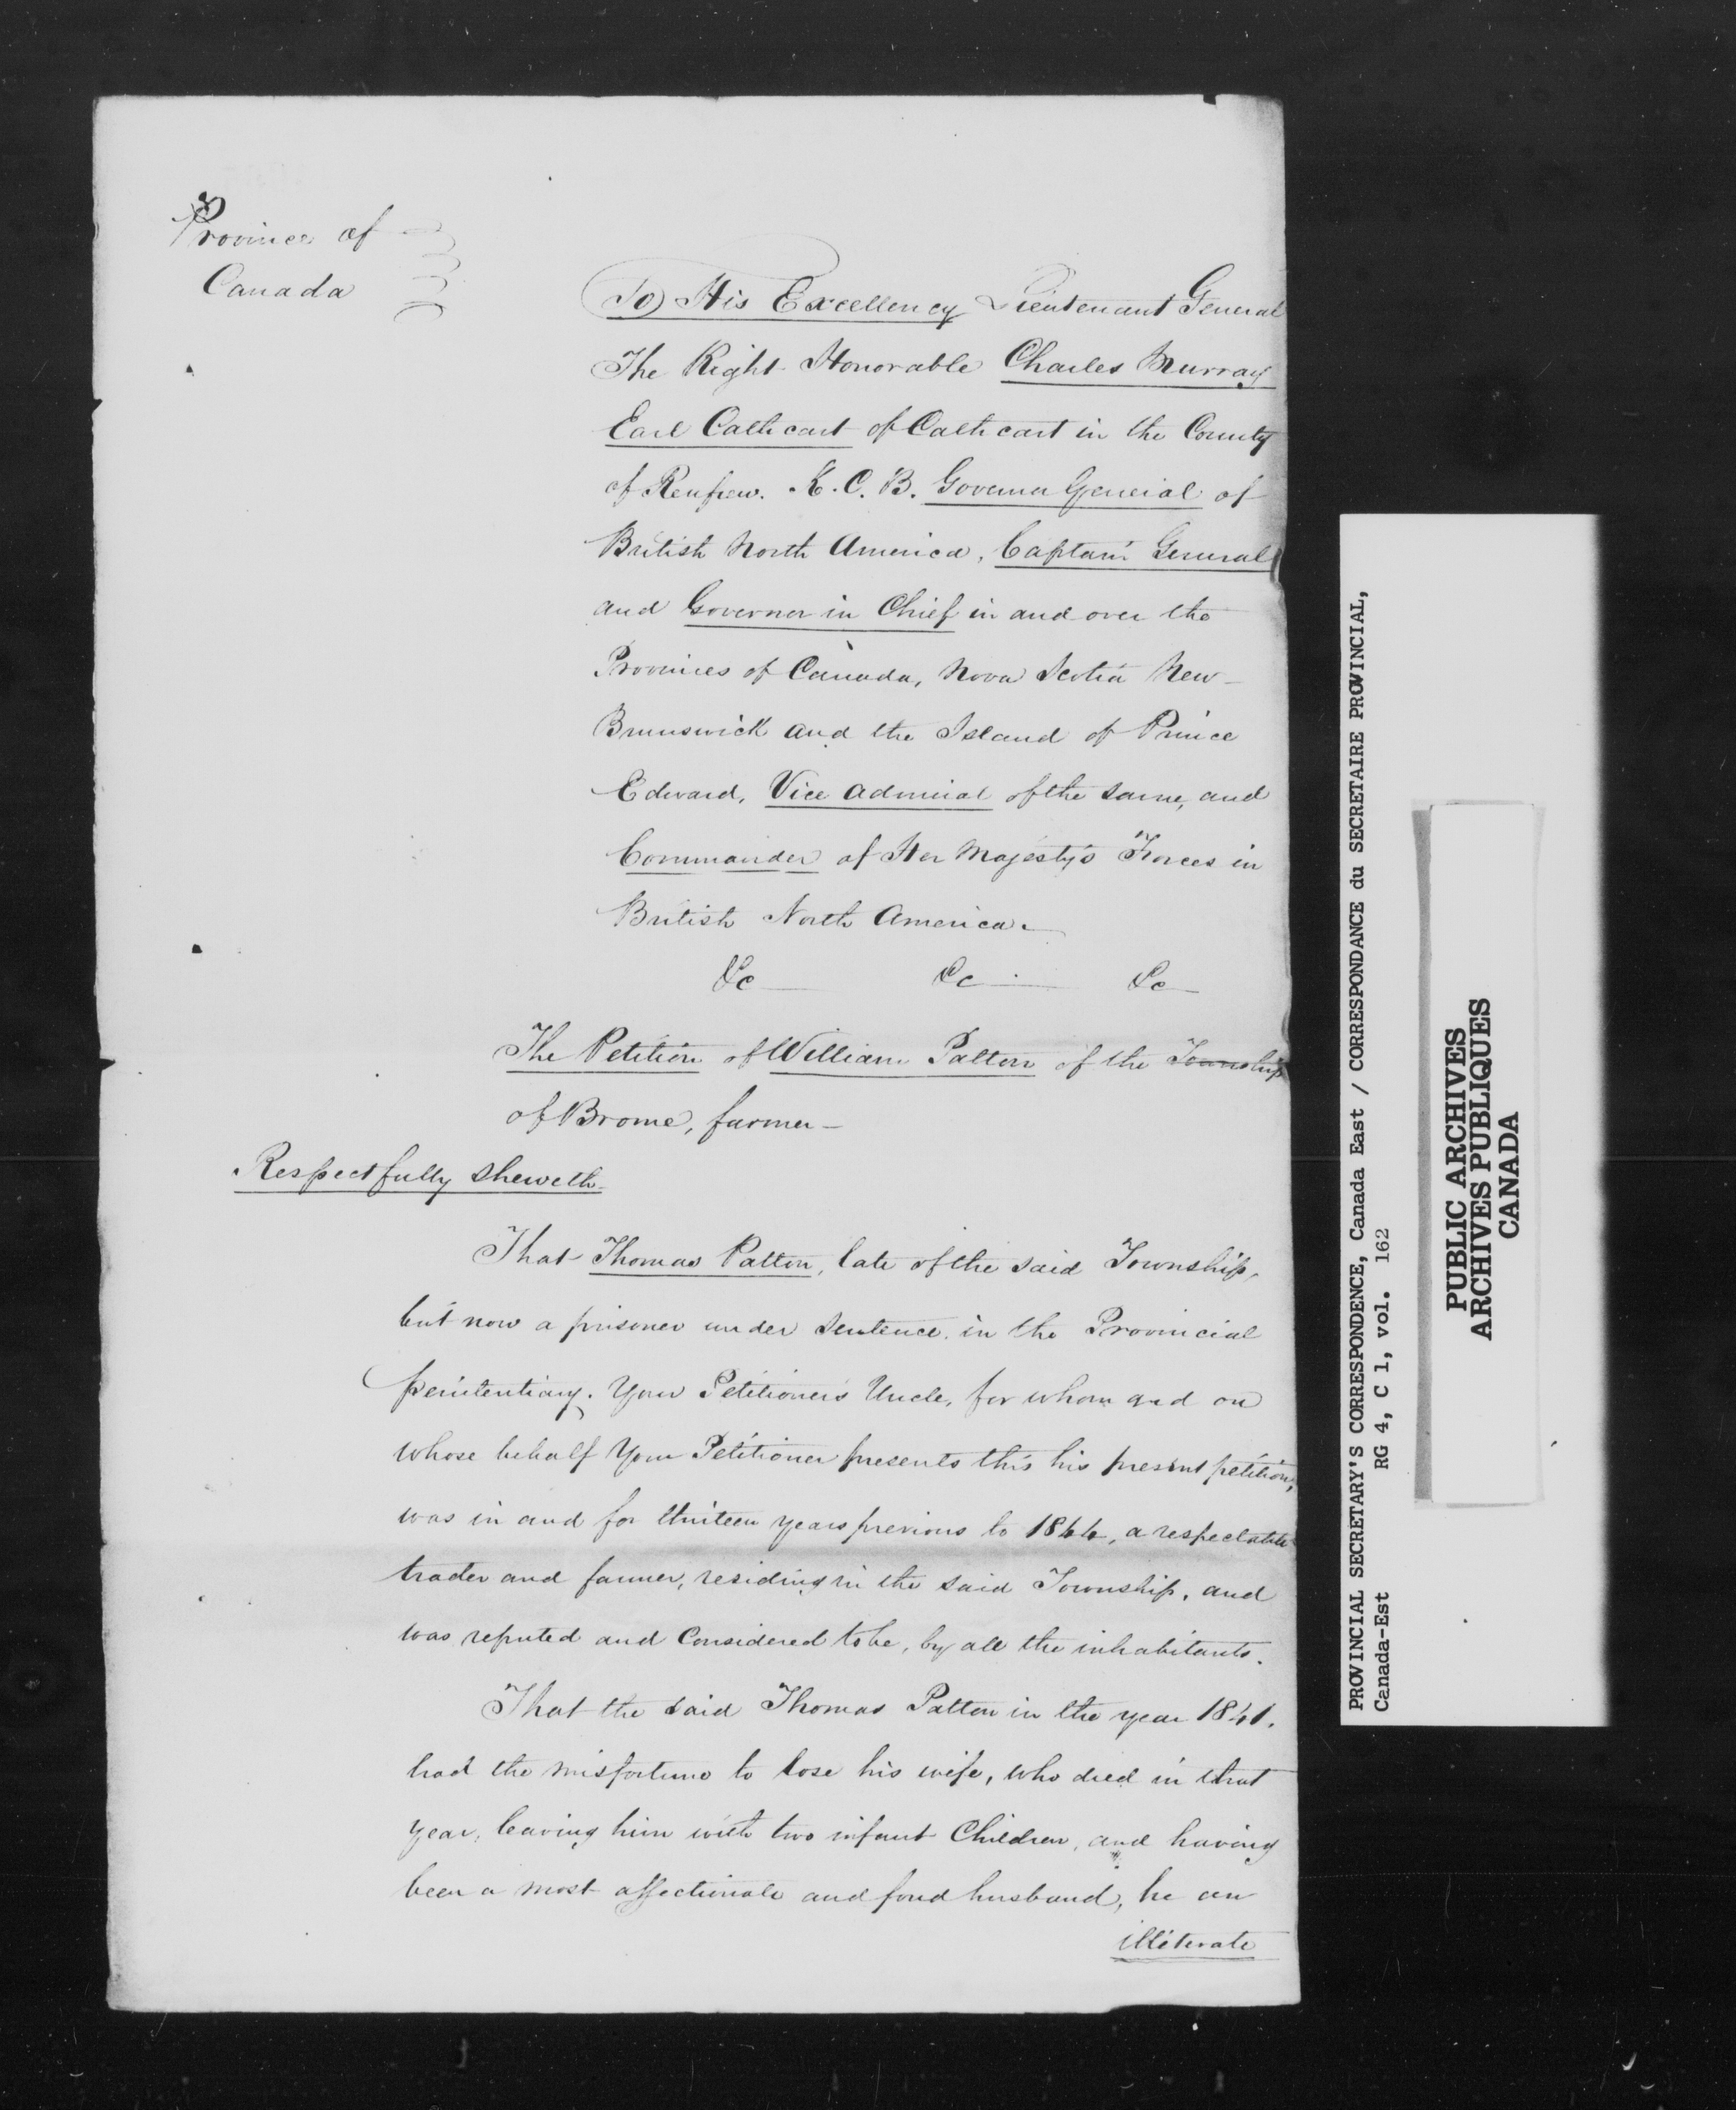 Province of
Canada
To His Excellency Lieutenant General
The Right Honorable Charles Murray
Earl Cathcart of Cathcart in the County
of Renfrew. K. C. B. Governor General of
British North America, Captain General
and Governor in Chief in and over the
Provinces of Canada, Nova Scotia New-
Brunswick and the Island of Prince
Edward, Vice Admiral of the same, and
Commander of Her Majesty's Forces in
British North America.
&c &c &c
The Petition of William Patton of the Township
of Brome, farmer—
Respectfully sheweth
That Thomas Patton, late of the said Township,
but now a prisoner under sentence in the Provincial
penitentiary. Your Petitioner's Uncle, for whom and on
whose behalf Your Petitioner presents this his present petition,
was in and for thirteen years previous to 1844, a respectable
trader and farmer, residing in the said Township, and
was reputed and Considered to be, by all the inhabitants.
That the said Thomas Patton in the year 1841.
had the misfortune to lose his wife, who died in that
year, leaving him with two infant Children, and having
been a most affectionate and fond husband, he an
illiterate
PROVINCIAL SECRETARY'S CORRESPONDENCE, Canada East / CORRESPONDANCE du SECRETAIRE PROVINCIAL,
Canada-Est RG 4, C 1, vol. 162
PUBLIC ARCHIVES
ARCHIVES PUBLIQUES
CANADA